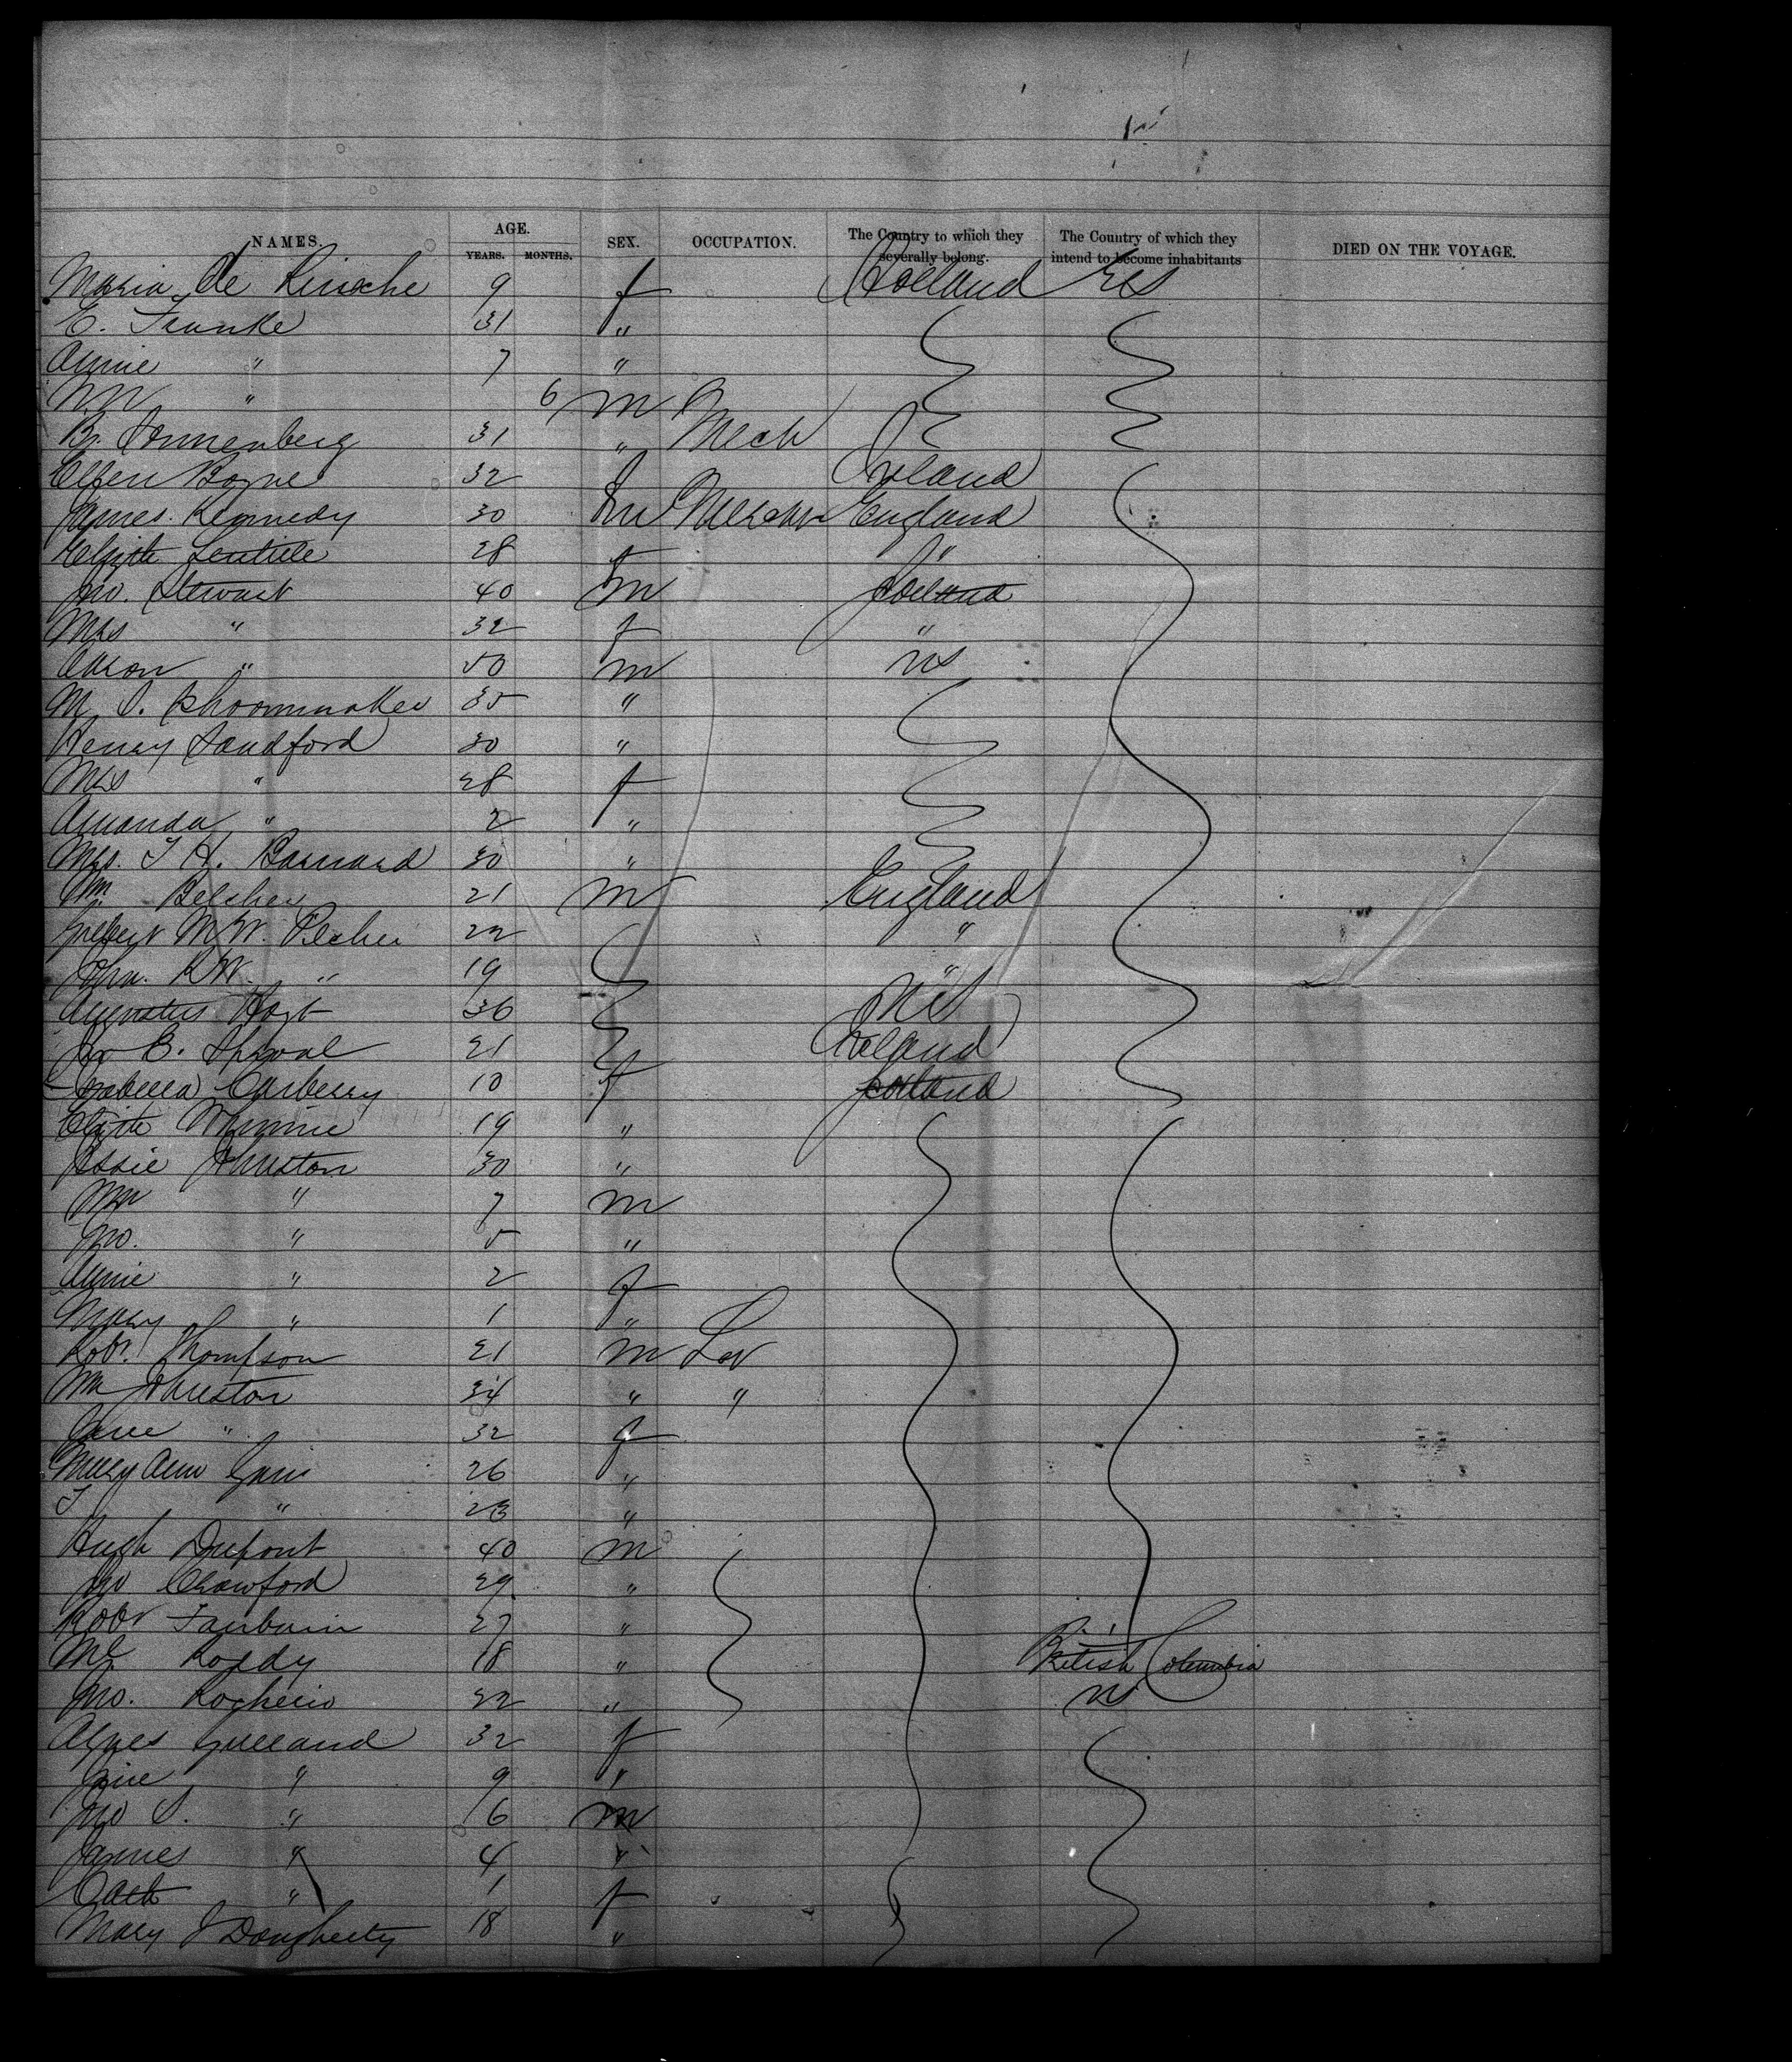 NAMES. AGE. YEARS. MONTHS. SEX. OCCUPATION. The Country to which they severally belong. The Country of which they intend to become inhabitants DIED ON THE VOYAGE.
Maria de 9 f Holland US
E. Franke 31 "
Annie " 7 "
" 6 m
B. Sonnenberg 31 " Mech
Ellen Boyne 32 f Ireland
James Kennedy 30 m Merchn England
28 f "
Jno. Stewart 40 m Scotland
Mrs " 32 f "
Aaron " 50 m US
M. S. Shoonmaker 35 "
Henry Sandford 30 "
Mrs " 28 f
Amanda " 2 "
Mrs. T H. Barnard 30 "
Wm Belcher 21 m England
M W. 22 "
John. R W. " 19 "
Augustus Hoyt 36 US
Jno B. 21 Ireland
Isabella Carberry 10 f Scotland
Elizth 19 "
Jessie Johnston 30 "
Wm " 7 m
Jno. " 5 "
Annie " 2 f
Mary " 1 "
Robt. Thompson 21 m Lab
Wm Johnston 34 " "
Jane " 32 f
Mary Ann 26 "
T " 23 "
Hugh Dupont 40 m
Jno Crawford 29 "
Robt Fairbairn 27 "
Roddy 18 " British Columbia
Jno. 22 " US
Agnes Gulland 32 f
Jane " 9 "
Jno S. " 6 m
James " 4 "
Cath " 1 f
Mary J Dougherty 18 "